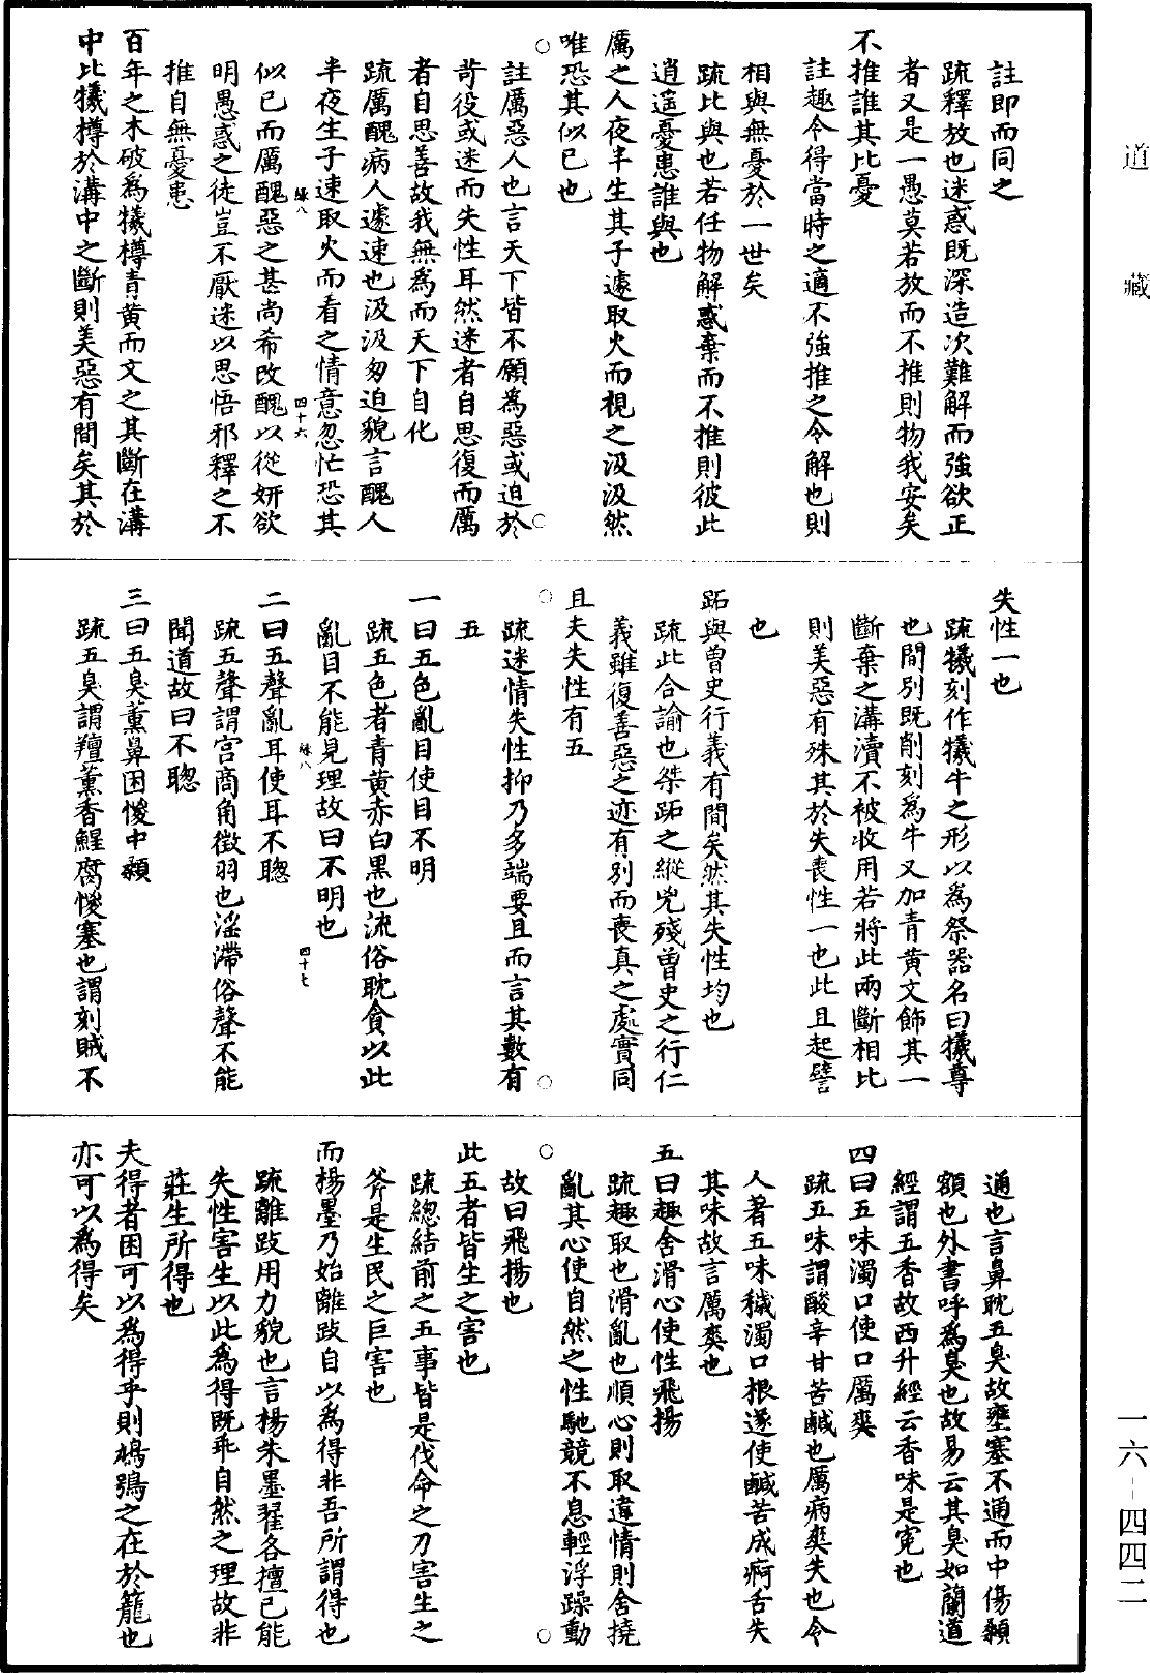 道藏
註即而同之
疏釋放也迷惑既深造次難解而強欲正
者又是一愚莫若放而不推則物我安矣
不推誰其比憂
註趣令得當時之適不強推之令解也則
相與無憂於一世矣
疏比與也若任物解惑棄而不推則彼此
逍遥憂患誰與也
厲之人夜半生其子遽取火而視之汲汲然
唯恐其似已也
註厲惡人也言天下皆不願為惡或迫於
苛役或迷而失性耳然迷者自思復而厲
者自思善故我無為而天下自化
疏厲醜病人遽速也汲汲匆迫貌言醜人
半夜生子速取火而看之情意忽忙恐其
似已而厲醜惡之甚尚希改醜以從妍欲
明愚惑之徒豈不厭迷以思悟邪釋之不
推自無憂患
百年之木破為犧樽青黄而文之其斷在溝
中比犧樽於溝中之斷則美惡有間矣其於
失性一也
疏犧刻作犧牛之形以為祭器名曰犧尊
也間別既削刻為牛又加青黄文飾其一
斷棄之溝瀆不被收用若將此兩斷相比
則美惡有殊其於失喪性一也此且起譬
也
跖與曾史行義有間矣然其失性均也
疏此合諭也桀跖之縱兇殘曾史之行仁
義雖復善惡之迹有別而喪真之處實同
且夫失性有五
疏迷情失性抑乃多端要且而言其數有
五
一曰五色亂目使目不明
疏五色者青黄赤白黑也流俗耽貪以此
亂目不能見理故曰不明也
二曰五聲亂耳使耳不聦
疏五聲謂宫商角徵羽也淫滯俗聲不能
聞道故曰不聦
三曰五臭薰鼻困惾中顙
疏五臭謂羶薰香鯹腐惾塞也謂刻賊不
通也言鼻耽五臭故壅塞不通而中傷顙
額也外書呼為臭也故易云其臭如蘭道
經謂五香故西升經云香味是寃也
四曰五味濁口使口厲爽
疏五味謂酸辛甘苦鹹也厲病爽失也令
人著五味穢濁口根遂使鹹苦成痾舌失
其味故言厲爽也
五曰趣舍滑心使性飛揚
疏趣取也滑亂也順心則取違情則舍撓
亂其心使自然之性馳競不息輕浮躁動
故曰飛揚也
此五者皆生之害也
疏總結前之五事皆是伐命之刀害生之
斧是生民之巨害也
而楊墨乃始離跂自以為得非吾所謂得也
疏離跂用力貌也言楊朱墨翟各擅已能
失性害生以此為得既乖自然之理故非
莊生所得也
夫得者困可以為得乎則鳩鴞之在於籠也
亦可以為得矣
緣八
四十六
緣八
四十七
一六-四四二